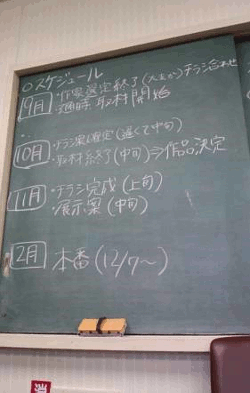 ○スケジュール
9月
・作家選定終了(大まか)チラシ合わせ
・随時、取材開始
10月
・チラシ案確定(遅くて中旬)
・取材終了(中旬)⇒作品決定
11月
・チラシ完成(上旬)
・展示案(中旬)
2月
本番(12/7〜)
消